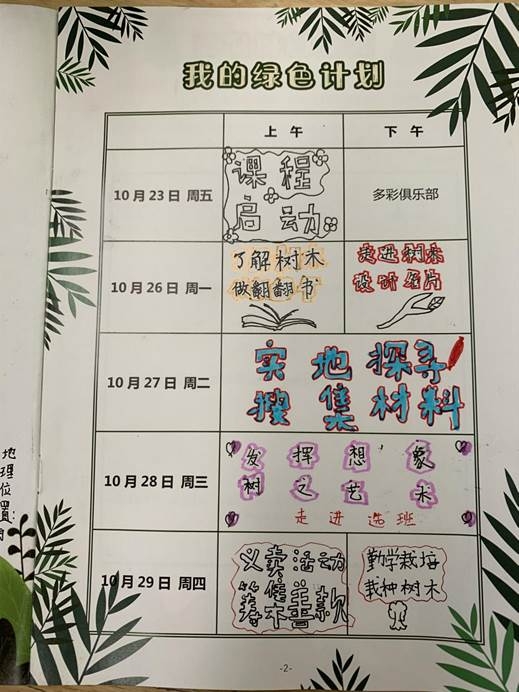 我的绿色计划
上午 下午
10月23日 周五
课程
启动
多彩俱乐部
10月26日 周一
了解树木
做翻翻书
走进树木
设计名片
10月27日 周二
实地探寻
搜集材料
10月28日 周三
发挥想象
树之艺术
走进选班
10月29日 周四
义卖活动
筹集善款
勤学栽培
栽种树木
地
理
位
置:
-2-